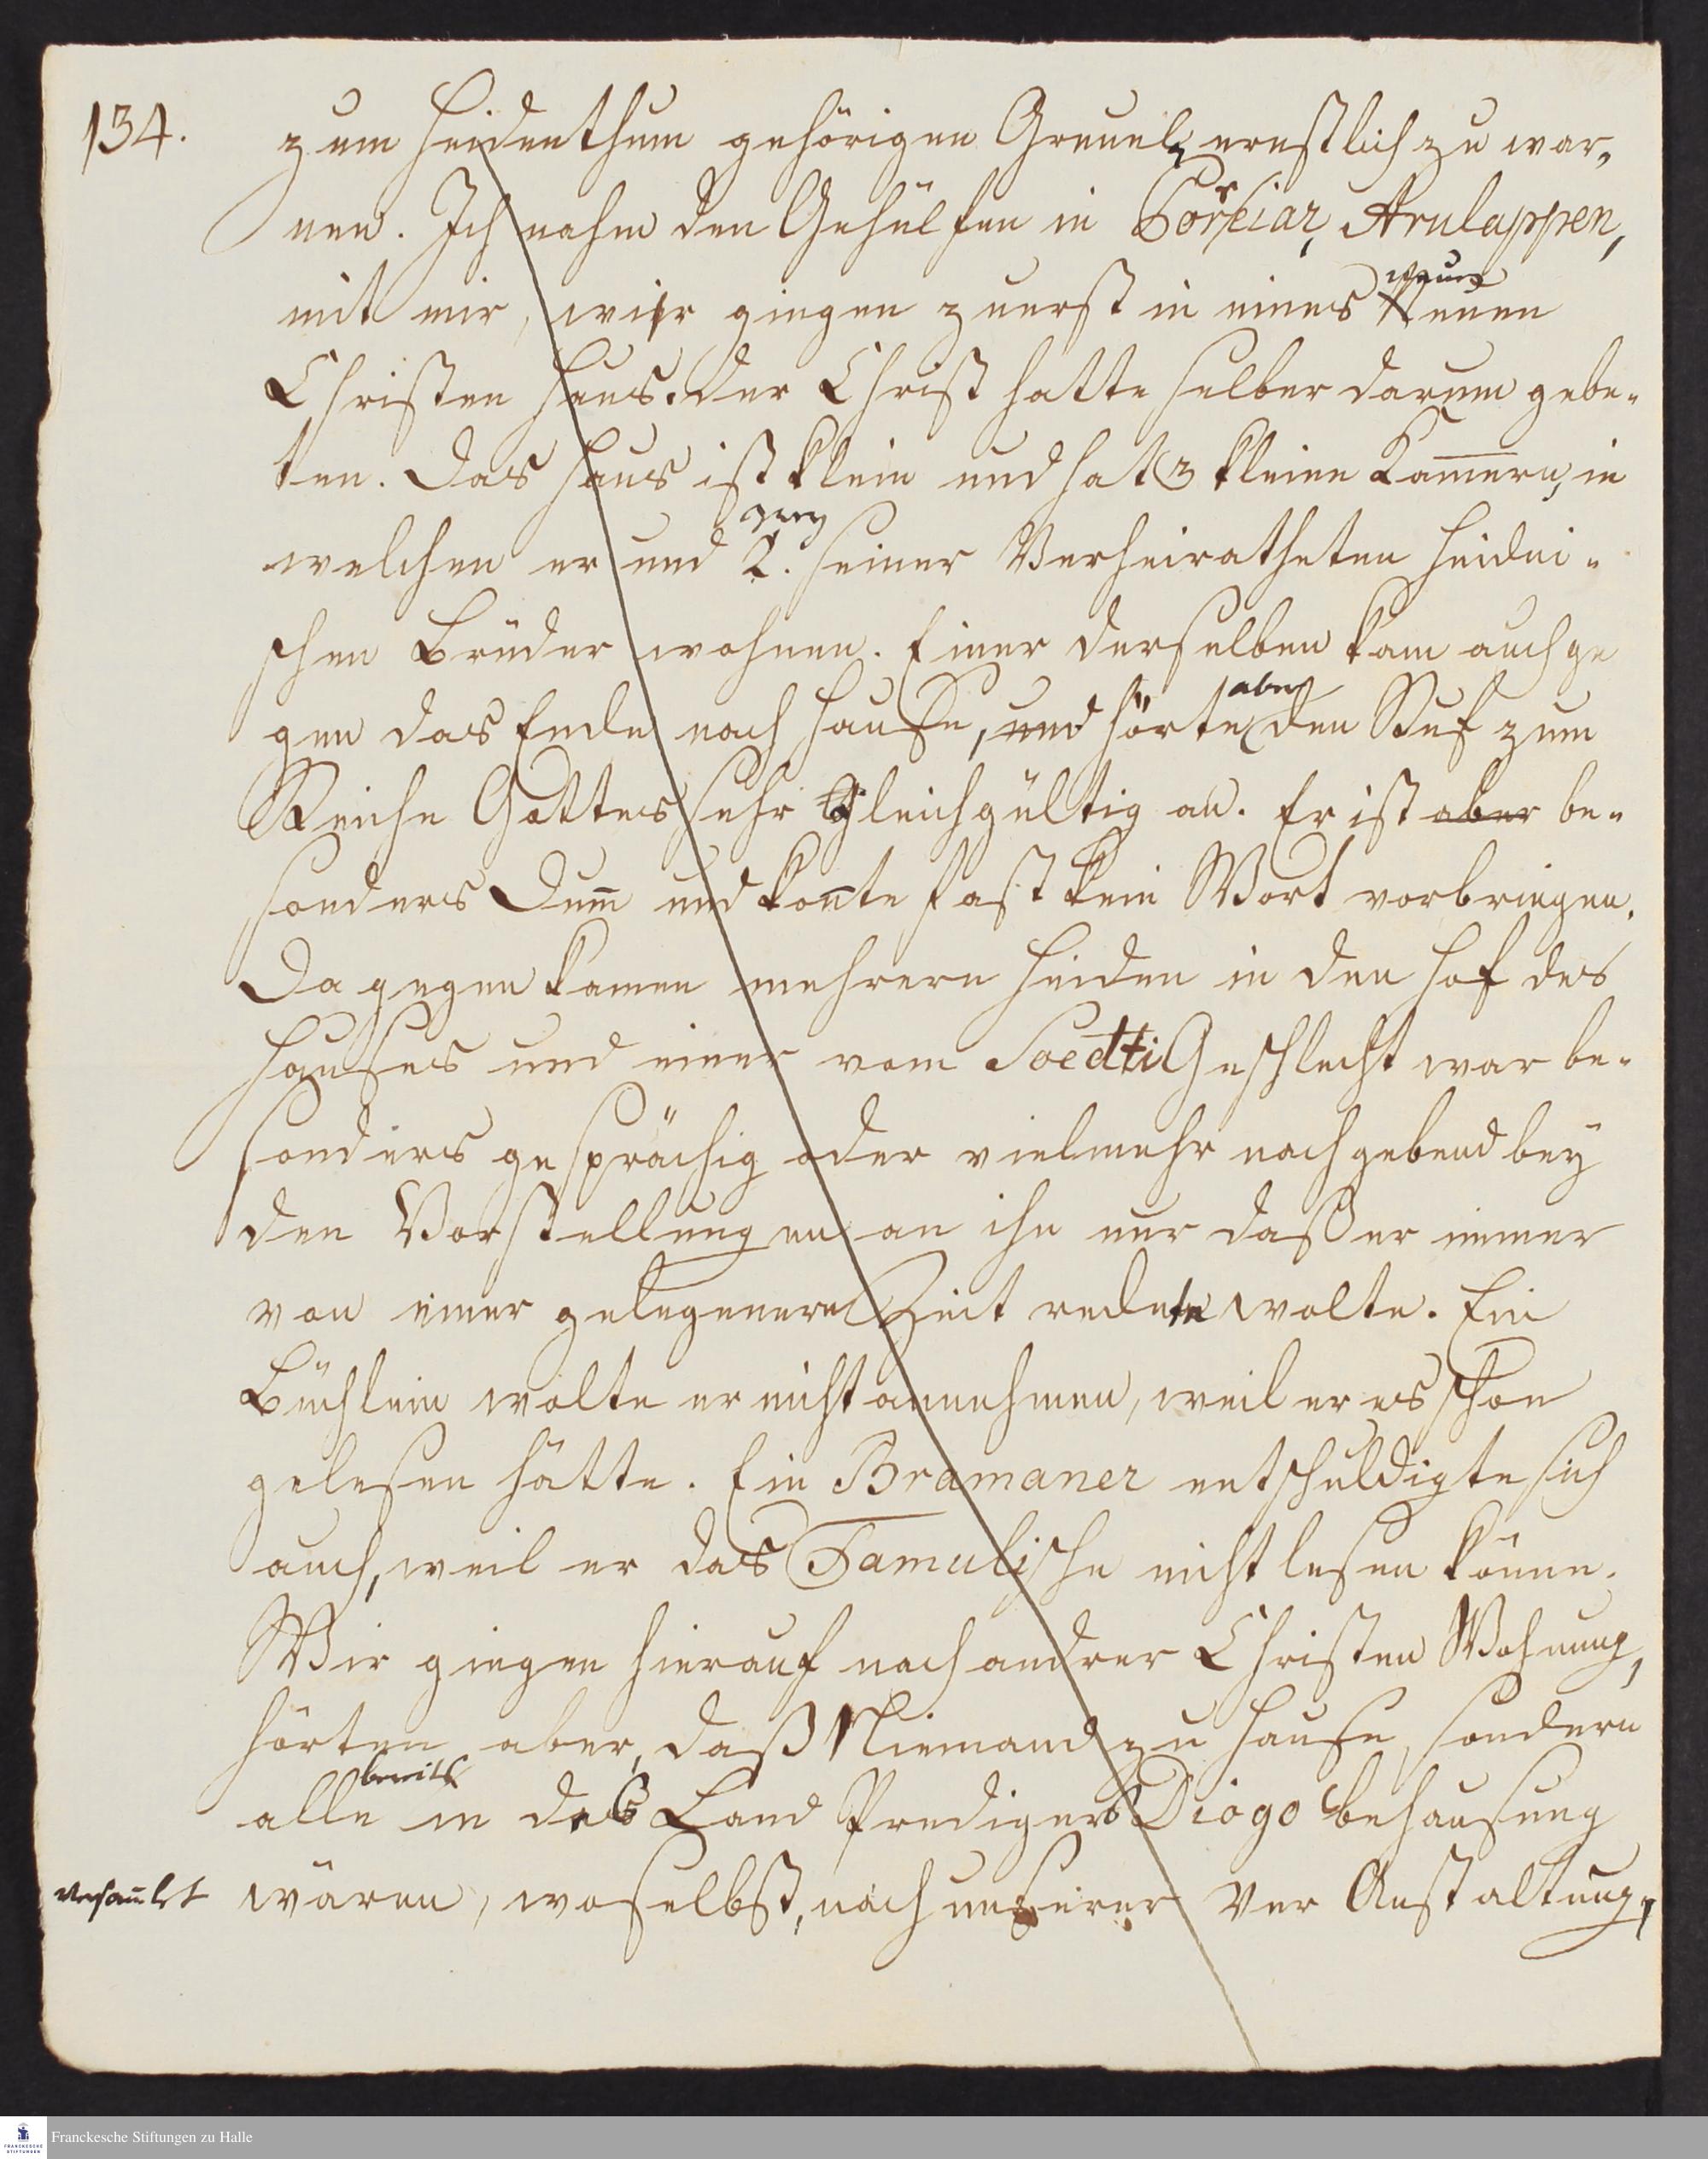 134.
zum Heidenthum gehörigen Greuel ernstlich zu war„
nen. Ich nahm den Gehülfen in Porreiar, Arulappen,
mit mir, wir gingen zuerst in eines neuen
Christen Haus. der Christ hatte selber darum gebe„
ten. Das Haus ist klein und hat 3 kleine Kam̅ern, in
zwey
welchen er und 2. seiner Verheiratheten heidni„
schen Brüder wohnen. Einer derselben kam auch ge
aber
gen das Ende nach Hause, und hörte den Ruf zum
Reiche Gottes sehr Gleichgültig an. Er ist aber be„
sonders Dum̅ und kon̅te fast kein Wort vorbringen.
Dagegen kamen mehrere Heiden in den Hof des
Hauses und einer vom Soedti Geschlecht war be„
sonders gesprächig oder vielmehr nachgebend bey
den Vorstellungen an ihn nur daß er immer
von einer gelegenern Zeit redete wolte. Ein
Büchlein wolte er nicht annehmen, weil er es schon
gelesen hätte. Ein Bramaner entschuldigte sich
auch, weil er das Tamulische nicht lesen könne.
Wir giengen hierauf nach andrer Christen Wohnung,
hörten aber, daß Niemand zu Hause, sondern
bereits
alle in des Land Predigers Diogo behausung
versam̅let wären, woselbst, nach unserer Ver Anstaltung,